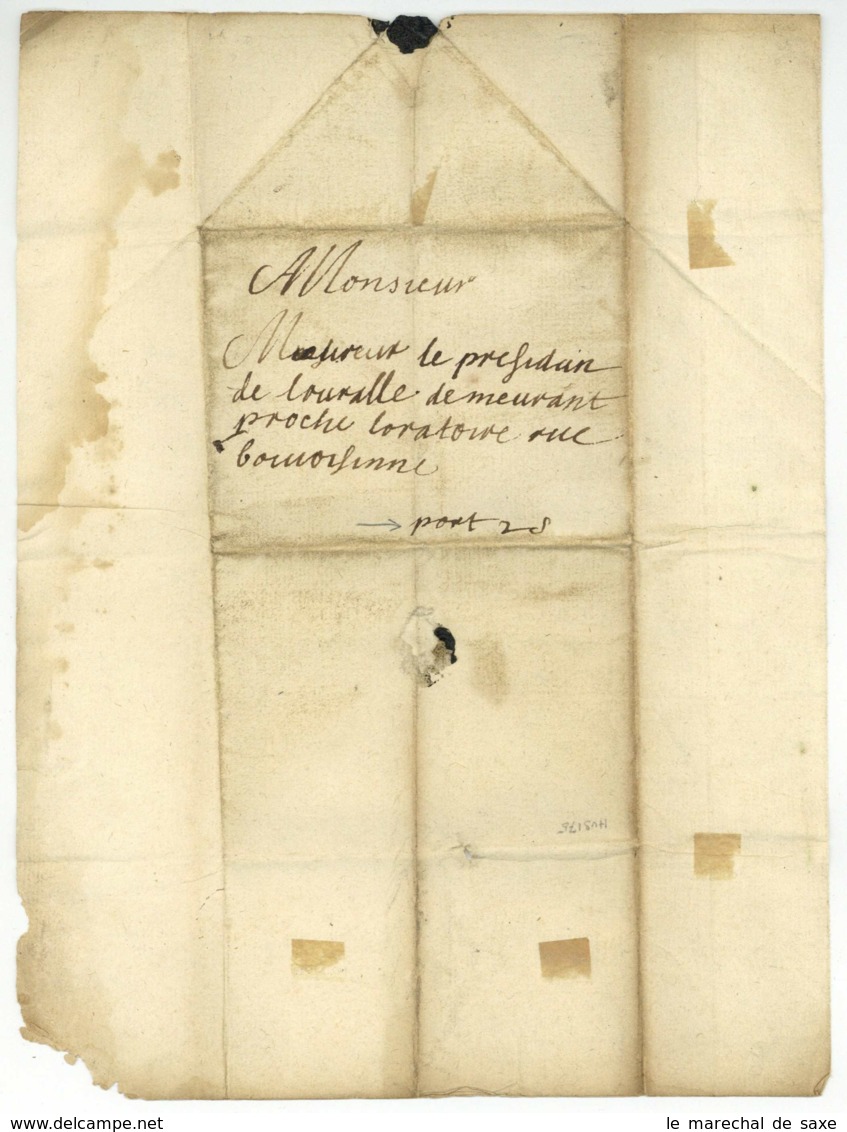 A Monsieur
Monsieur le presidan
de louralle demeurant
proche loratoire rue
→ port 2 s
HVS175
www.delcampe.net
le marechal de saxe